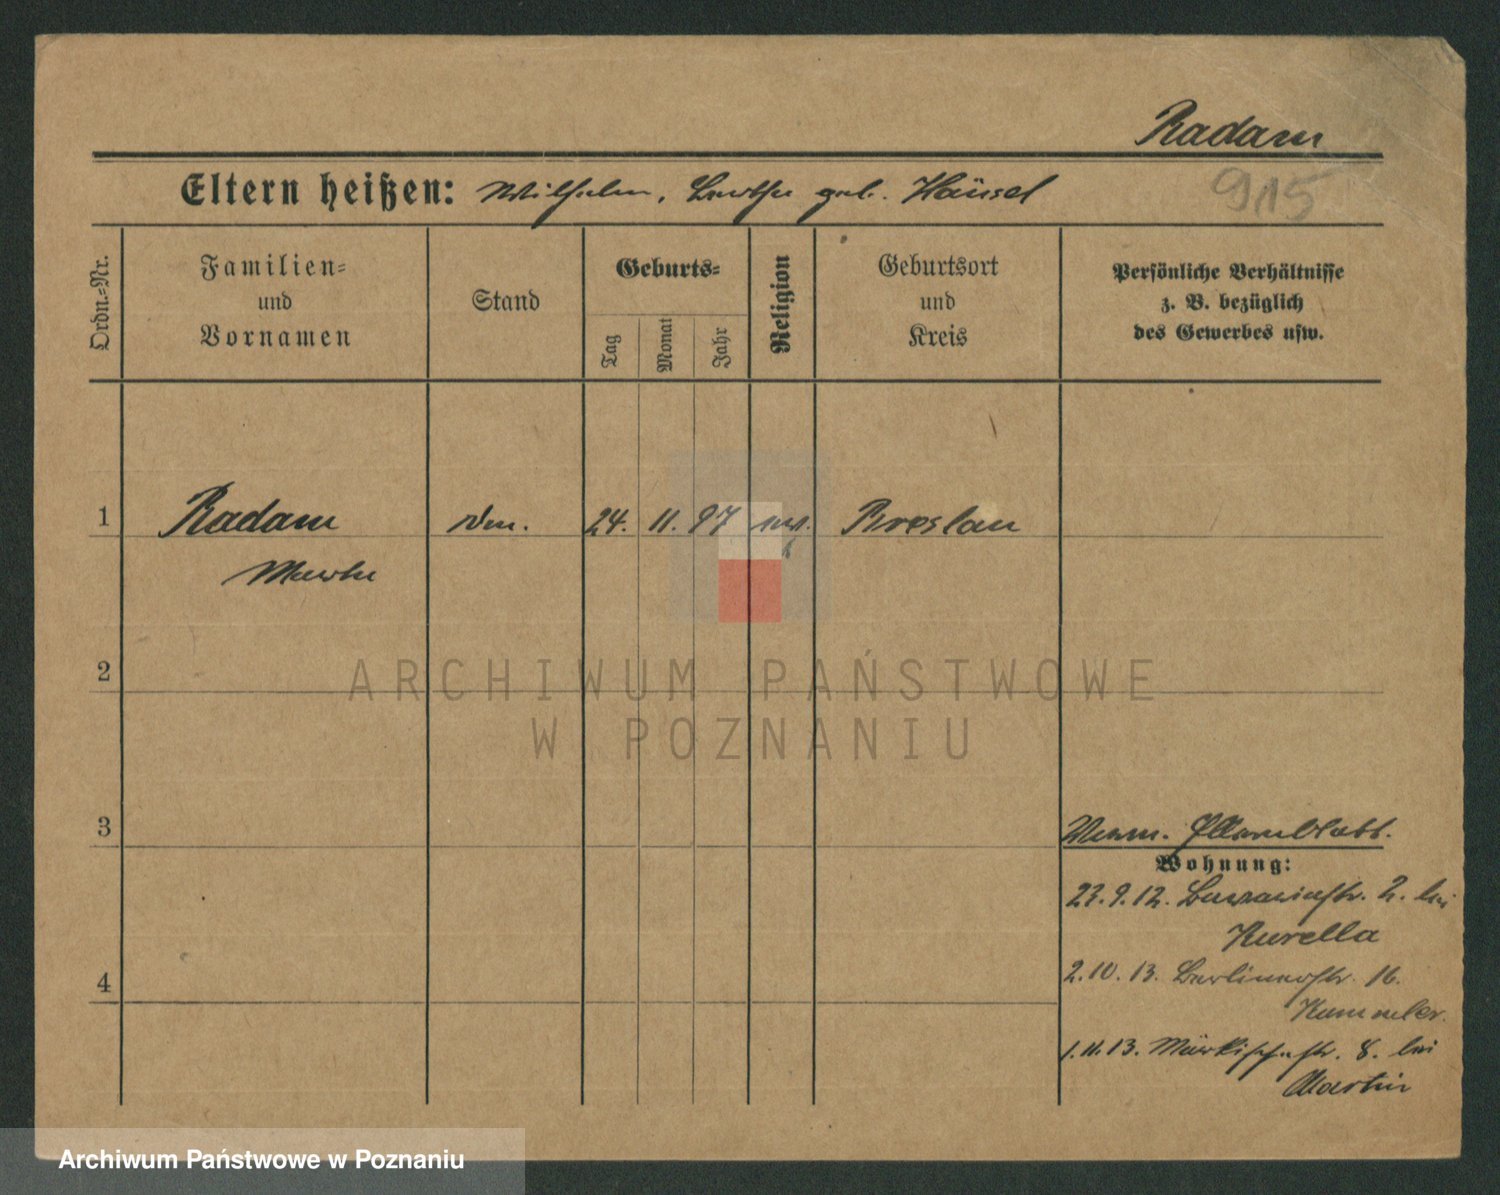 Radam
Eltern heißen: Wilhelm, Bertha geb. Hänsel
915
Ordn.=Nr.
Familien=
und
Vornamen
Stand
Geburts=
Tag
Monat
Jahr
Religion
Geburtsort
und
Kreis
Persönliche Verhältnisse
z. B. bezüglich
des Gewerbes usw.
1 Radam 24. 11. 97 Breslau
Martha
2
ARCHIWUM PAŃSTWOWE
W POZNANIU
3
Wohnung:
23.9.12. 2. bei
Kurella
4
2.10.13. Berlinerstr. 16.
Kummler.
1.11.13. Märkischestr. 8. bei
Martin
Archiwum Państwowe w Poznaniu